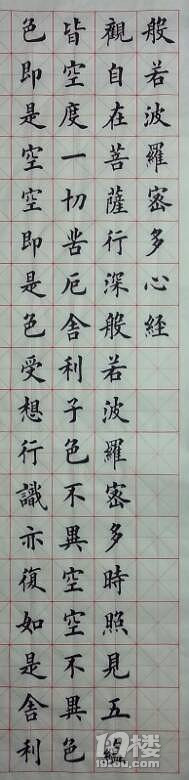 般若波羅密多心經
觀自在菩薩行深般若波羅密多時照見五蘊
皆空度一切苦厄舍利子色不異空空不異色
色即是空空即是色受想行識亦復如是舍利
19楼
19lou.com